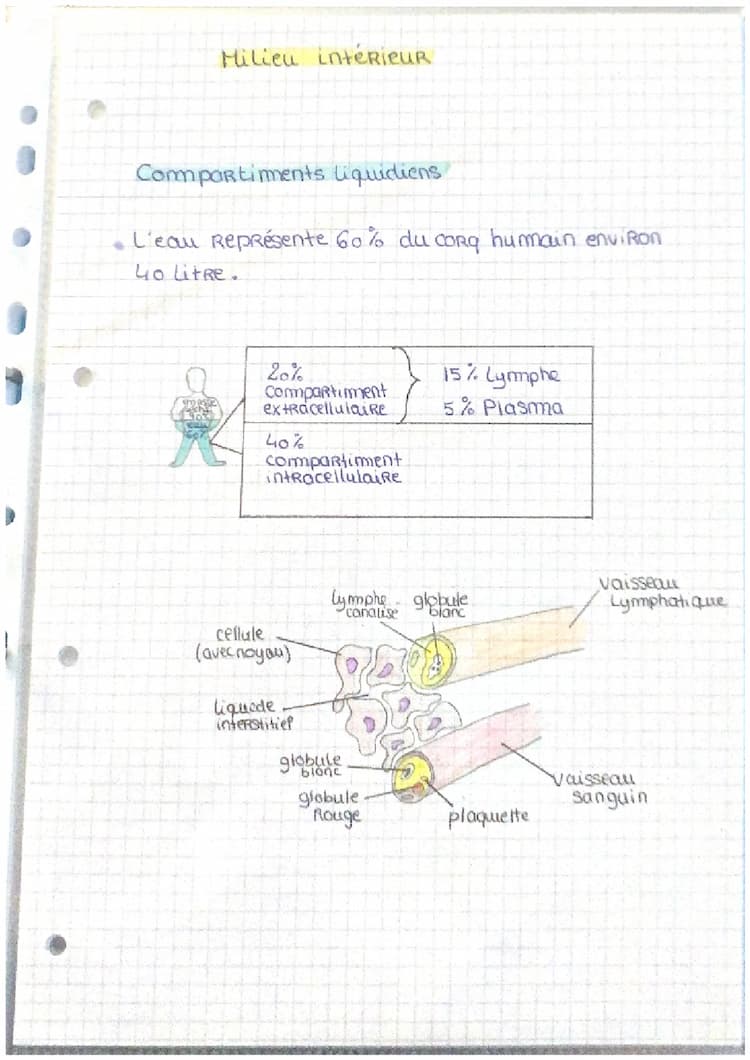 Milieu intérieur
Compartiments liquidiens
• L'eau représente 60% du corq humain environ
40 litre.
20%
compartiment
extracellulaire
15% Lymphe
5% Plasma
masse
sèche
40%
eau
60%
40%
compartiment
intracellulaire
vaisseau
Lymphatique
lymphe
canalisé
globule
blanc
cellule
(avec noyau)
liquide
interstitiel
globule
blanc
globule
Rouge
plaquette
vaisseau
sanguin